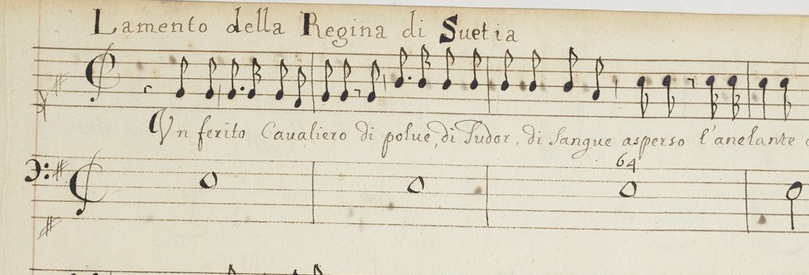 Lamento della Regina di Suetia
Vn ferito Caualiero di polue, di Sudor, di Sangue asperso l'anelante
64